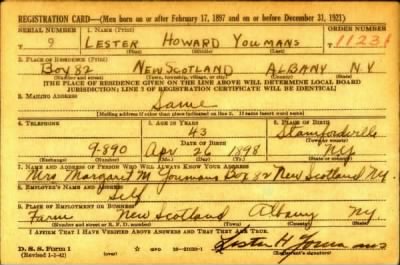 REGISTRATION CARD—(Men born on or after February 17, 1897 and on or before December 31, 1921)
SERIAL NUMBER 1. NAME (Print) ORDER NUMBER
9 LESTER HOWARD YOUMANS 11231
(First) (Middle) (Last)
2. PLACE OF RESIDENCE (Print)
Box 82 NEW SCOTLAND ALBANY N.Y
(Number and street) (Town, township, village, or city) (County) (State)
[THE PLACE OF RESIDENCE GIVEN ON THE LINE ABOVE WILL DETERMINE LOCAL BOARD
JURISDICTION; LINE 2 OF REGISTRATION CERTIFICATE WILL BE IDENTICAL]
3. MAILING ADDRESS
Same
[Mailing address if other than place indicated on line 2. If same insert word same]
4. TELEPHONE 5. AGE IN YEARS 6. PLACE OF BIRTH
43
DATE OF BIRTH
9-890 Apr 26 1898 NY
(Exchange) (Number) (Mo.) (Day) (Yr.) (State or country)
7. NAME AND ADDRESS OF PERSON WHO WILL ALWAYS KNOW YOUR ADDRESS
Mrs Margaret M Youmans Box 82 New Scotland NY.
8. EMPLOYER'S NAME AND ADDRESS
Self
9. PLACE OF EMPLOYMENT OR BUSINESS
Farm New Scotland Albany NY.
(Number and street or R. F. D. number) (Town) (County) (State)
I AFFIRM THAT I HAVE VERIFIED ABOVE ANSWERS AND THAT THEY ARE TRUE.
D. S. S. Form 1
(Revised 1-1-42) GPO Lester H. Youmans
(Registrant's signature)